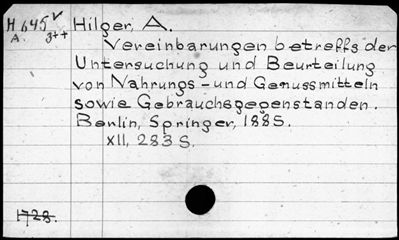 H645✓ Hilger, A.
A. 3++
Vereinbarungen betreffs der
Untersuchung und Beurteilung
von Nahrungs-und Genussmitteln
sowie Gebrauchsgegenstanden.
Berlin, Springer, 1885.
XII, 283 S.
1728.